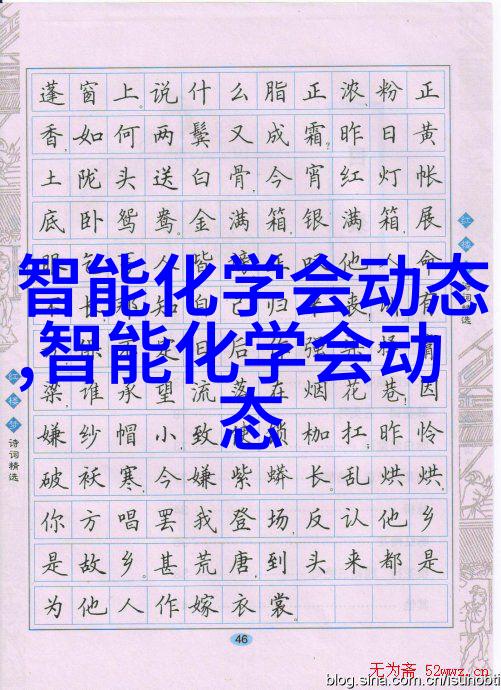 蓬窗上。说什么脂正浓、粉正
香,如何两鬓又成霜?昨日黄
土陇头送白骨,今宵红灯帐
底卧鸳鸯。金满箱,银满箱,展
人皆他人命
智能化学会动态
,智能化学会动
态
粱,谁承望流落在烟花巷!因
嫌纱帽小,致锁枷扛;昨怜
破袄寒,今嫌紫蟒长。乱烘烘,
你方唱罢我登场,反认他乡
是故乡。甚荒唐,到头来都是
为他人作嫁衣裳
46
红楼梦
诗词精选
无为斋 52wwz.cn
blog.sina.com.cn/isunobti